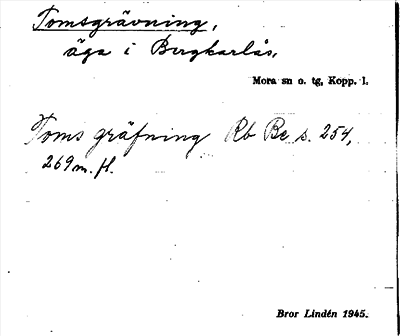 Tomsgrävning,
äga i Bergkarlås,
Mora sn o. tg, Kopp. l.
Toms gräfning Rb Be s. 254,
269 m. fl.
Bror Lindén 1945.